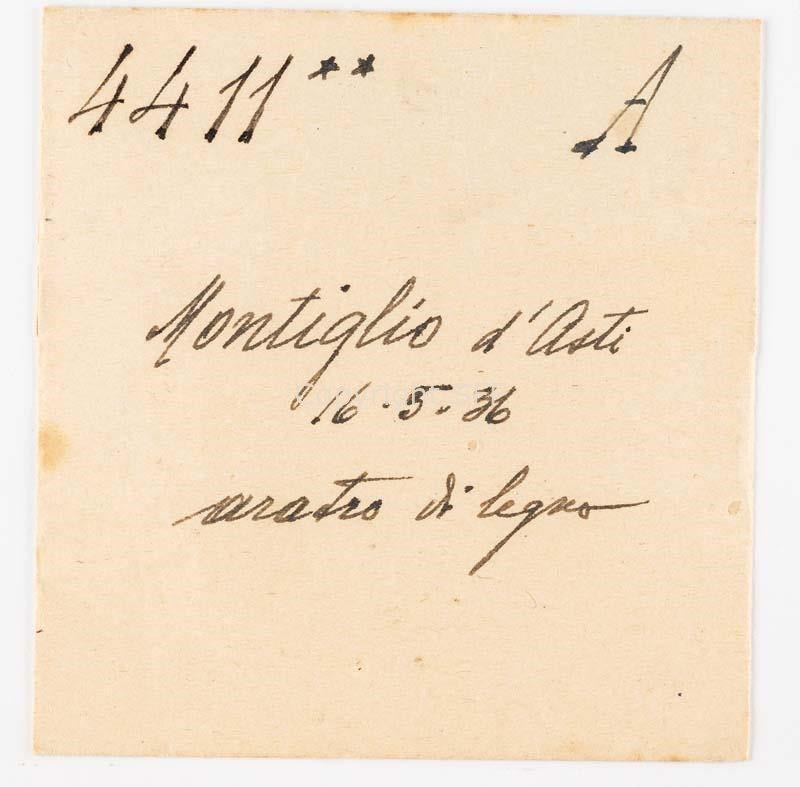 4411** A
Montiglio d'Asti
16-5-36
aratro di legno